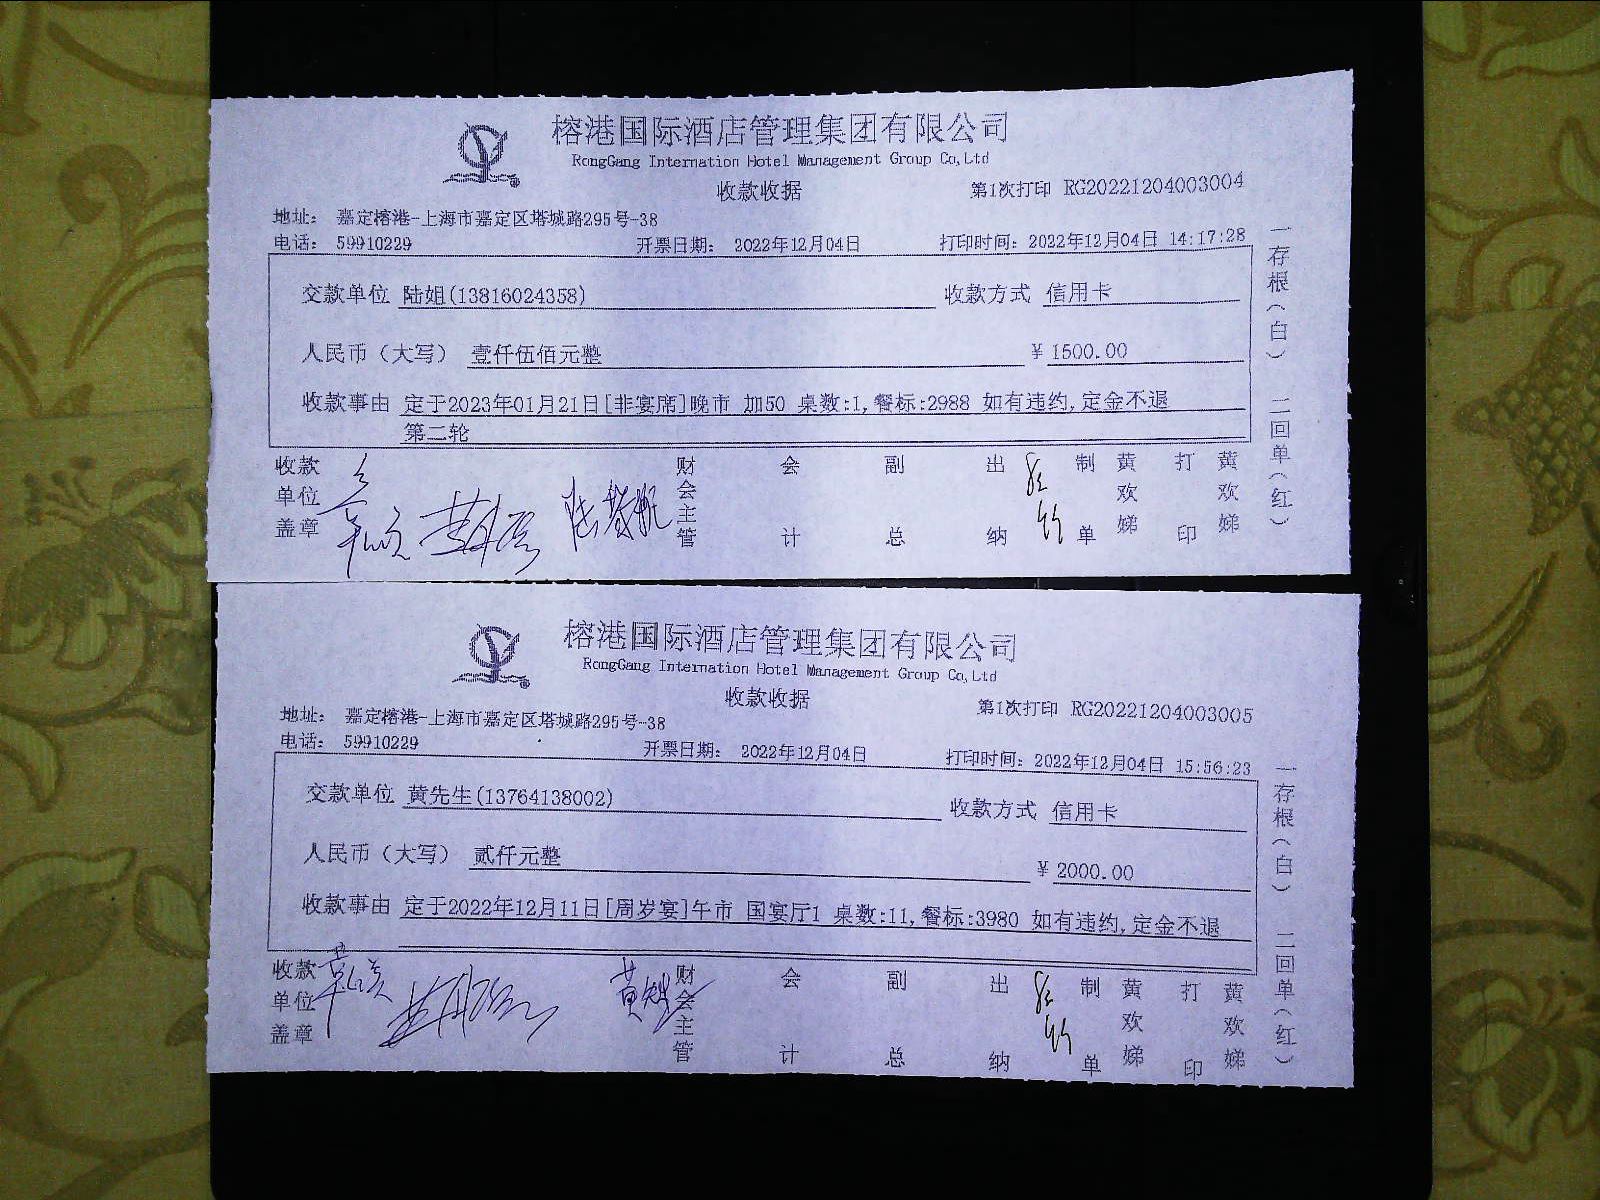 榕港国际酒店管理集团有限公司
RongGang Internation Hotel Management Group Co,Ltd
收款收据
第1次打印 RG20221204003004
地址： 嘉定榕港-上海市嘉定区塔城路295号-38
电话： 59910229 开票日期： 2022年12月04日 打印时间：2022年12月04日 14:17:28
交款单位 陆姐(13816024358) 收款方式 信用卡
人民币（大写） 壹仟伍佰元整 ￥ 1500.00
收款事由 定于2023年01月21日[非宴席]晚市 加50 桌数:1,餐标:2988 如有违约,定金不退
第二轮
收款单位盖章 财会主管 会计 副总 出纳 制单 黄欢娣 打印 黄欢娣
一存根（白） 二回单（红）
榕港国际酒店管理集团有限公司
RongGang Internation Hotel Management Group Co,Ltd
收款收据
第1次打印 RG20221204003005
地址： 嘉定榕港-上海市嘉定区塔城路295号-38
电话： 59910229 开票日期： 2022年12月04日 打印时间：2022年12月04日 15:56:23
交款单位 黄先生(13764138002) 收款方式 信用卡
人民币（大写） 贰仟元整 ￥ 2000.00
收款事由 定于2022年12月11日[周岁宴]午市 国宴厅1 桌数:11,餐标:3980 如有违约,定金不退
收款单位盖章 财会主管 会计 副总 出纳 制单 黄欢娣 打印 黄欢娣
一存根（白） 二回单（红）